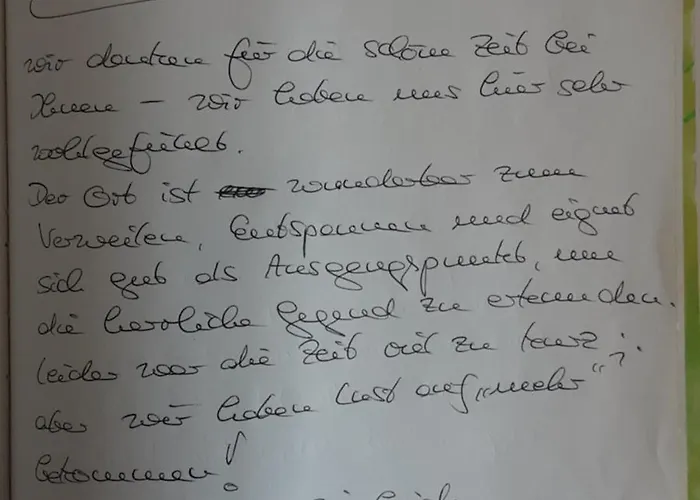 wir danken für die schöne Zeit bei
Ihnen – wir haben uns hier sehr
wohlgefühlt.
Der Ort ist wunderbar zum
Verweilen, Entspannen und eignet
sich gut als Ausgangspunkt, um
die herrliche Gegend zu erkunden.
Leider war die Zeit viel zu kurz;
aber wir haben Lust auf „mehr"
bekommen!